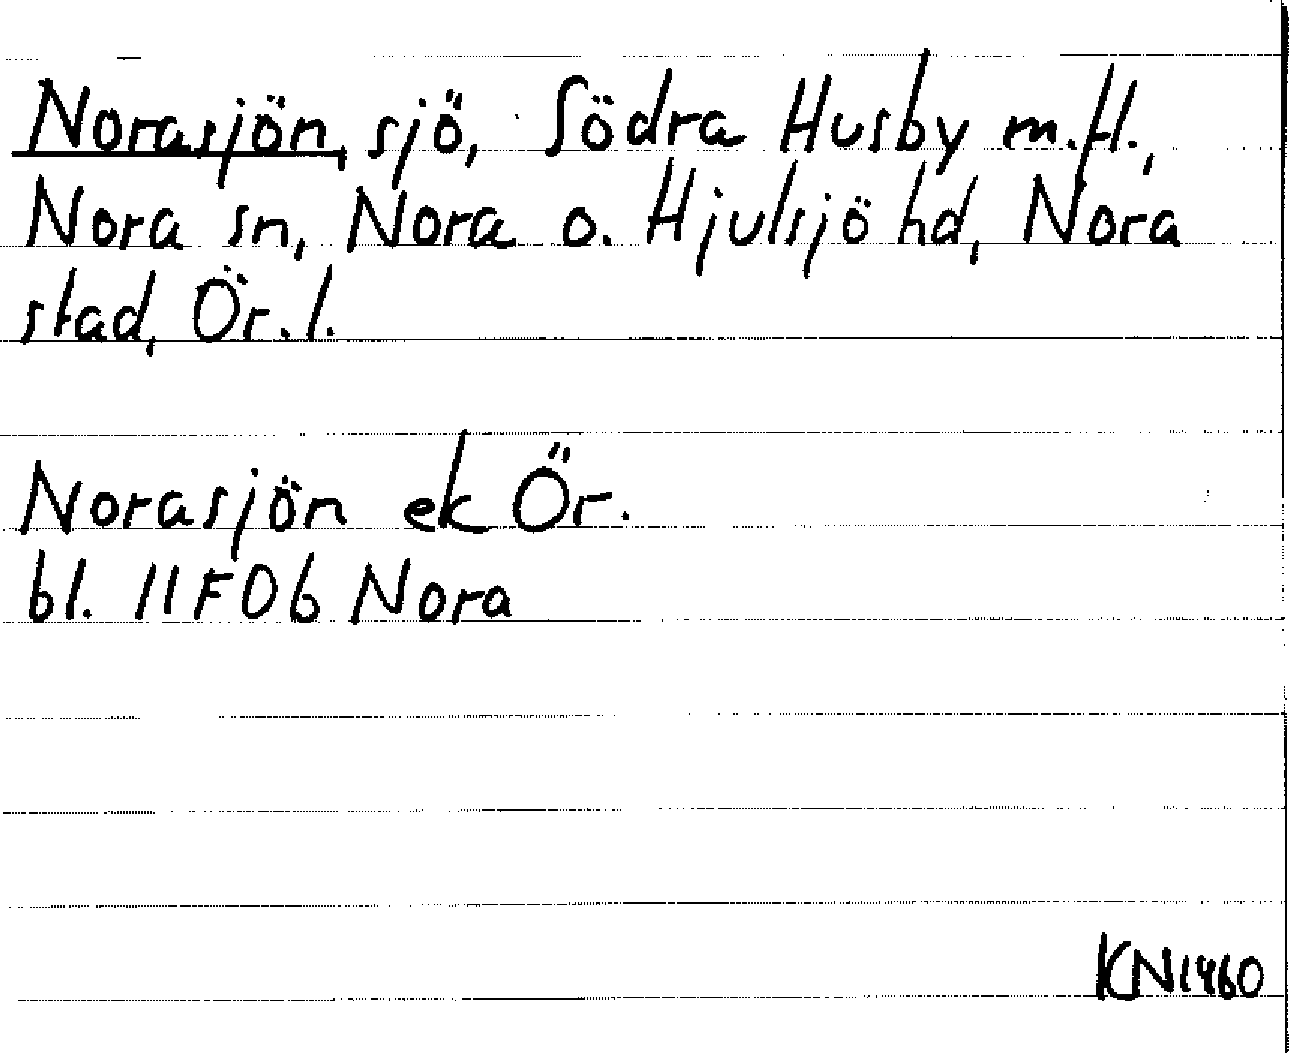 Norasjön, sjö, Södra Husby m.fl.,
Nora sn, Nora o. Hjulsjö hd, Nora
stad, Ör. l.
Norasjön ek Ör.
bl. 11F0b Nora
KN1460